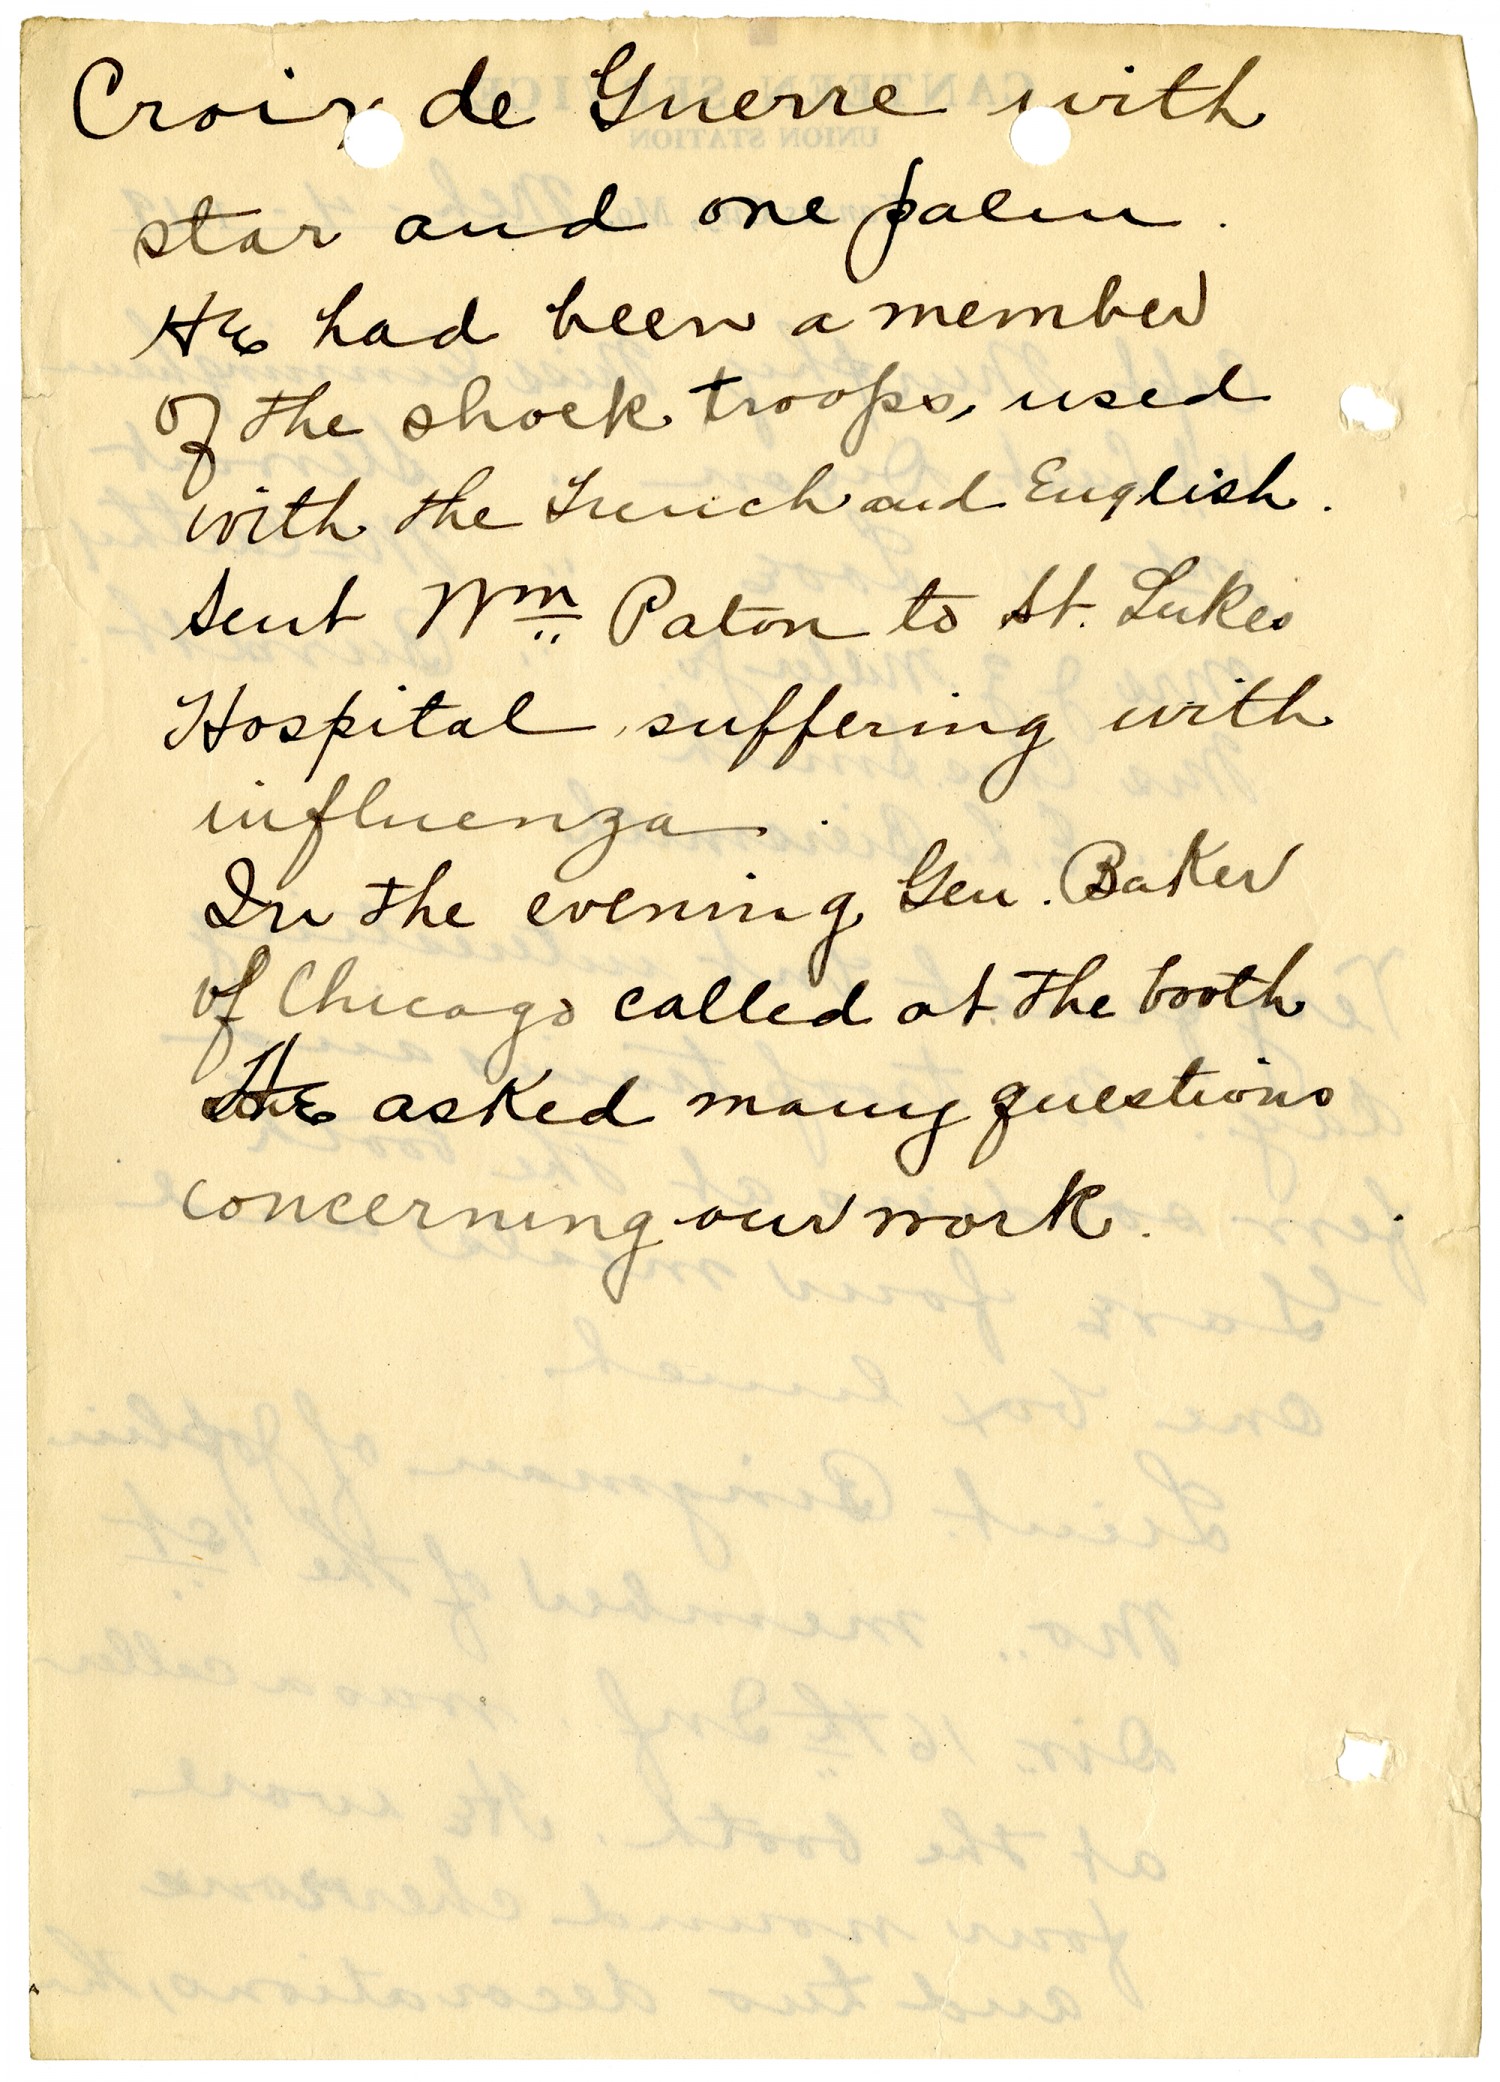 Croix de Guerre with
star and one palm.
He had been a member
of the shock troops, used
with the French and English.
Sent Wm Paton to St. Lukes
Hospital suffering with
influenza.
In the evening Gen. Baker
of Chicago called at the booth
He asked many questions
concerning our work.